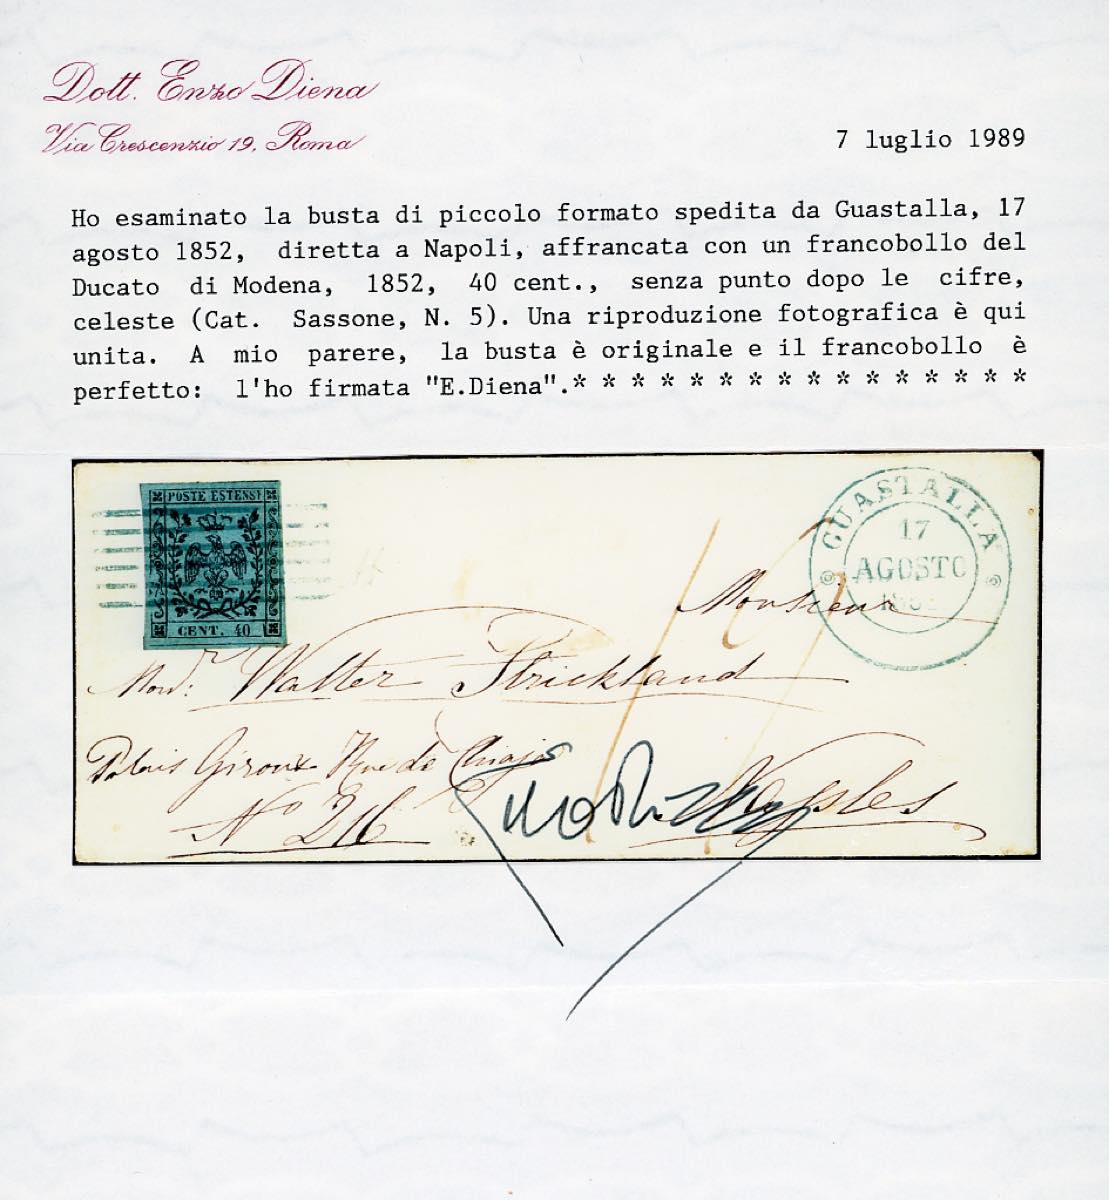 Dott. Enzo Diena
Via Crescenzio 19, Roma
7 luglio 1989
Ho esaminato la busta di piccolo formato spedita da Guastalla, 17
agosto 1852, diretta a Napoli, affrancata con un francobollo del
Ducato di Modena, 1852, 40 cent., senza punto dopo le cifre,
celeste (Cat. Sassone, N. 5). Una riproduzione fotografica è qui
unita. A mio parere, la busta è originale e il francobollo è
perfetto: l'ho firmata "E.Diena".* * * * * * * * * * * * * * * *
POSTE ESTENSI
CENT. 40
GUASTALLA
17
AGOSTO
Monsieur
Walter Strickland
Palais Giroux Rue de Chiaja
No 216
Naples